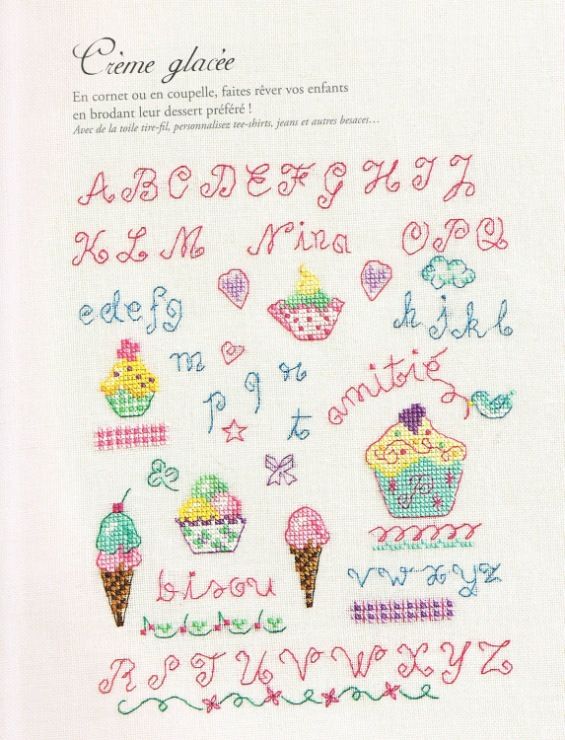 Crème glacée
En cornet ou en coupelle, faites rêver vos enfants
en brodant leur dessert préféré !
Avec de la toile tire-fil, personnalisez tee-shirts, jeans et autres besaces...
A B C D E F G H I J
K L M Nina O P Q
e d e f g h i k l
m p q n t amitié
bisou v w x y z
R S T U V W X Y Z